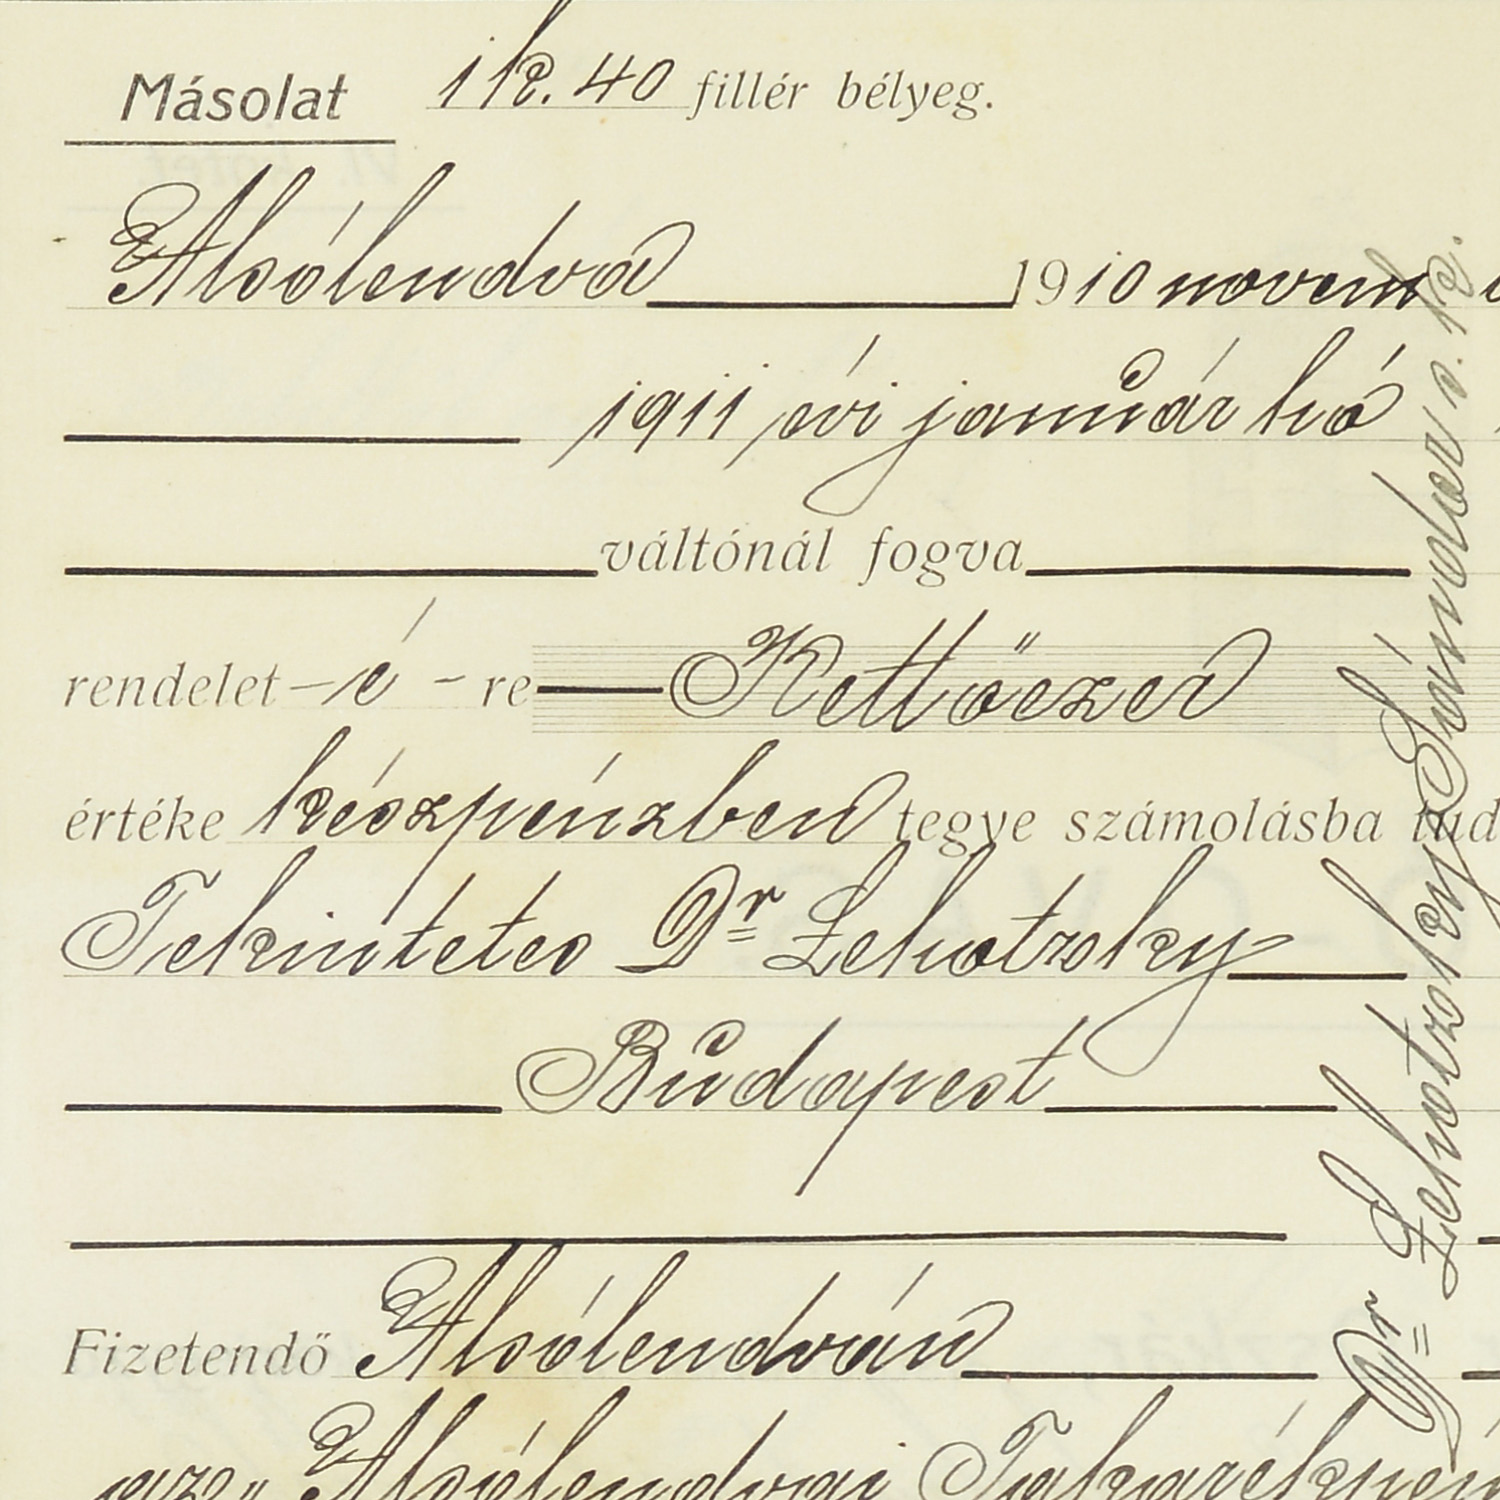 Másolat 1 k. 40 fillér bélyeg.
Alsólendva 1910 novem
1911 évi január hó
váltónál fogva
rendelet – é – re Kettőezer
értéke készpénzben tegye számolásba tud
Tekintetes Dr Lehotzky
Budapest
Fizetendő Alsólendván
az „Alsólendvai Takarékpén
Dr Lehotzky Sándor s. k.